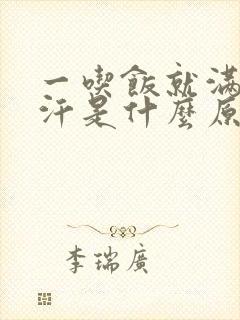 一喫飯就滿
汗是什麼原
李瑞廣